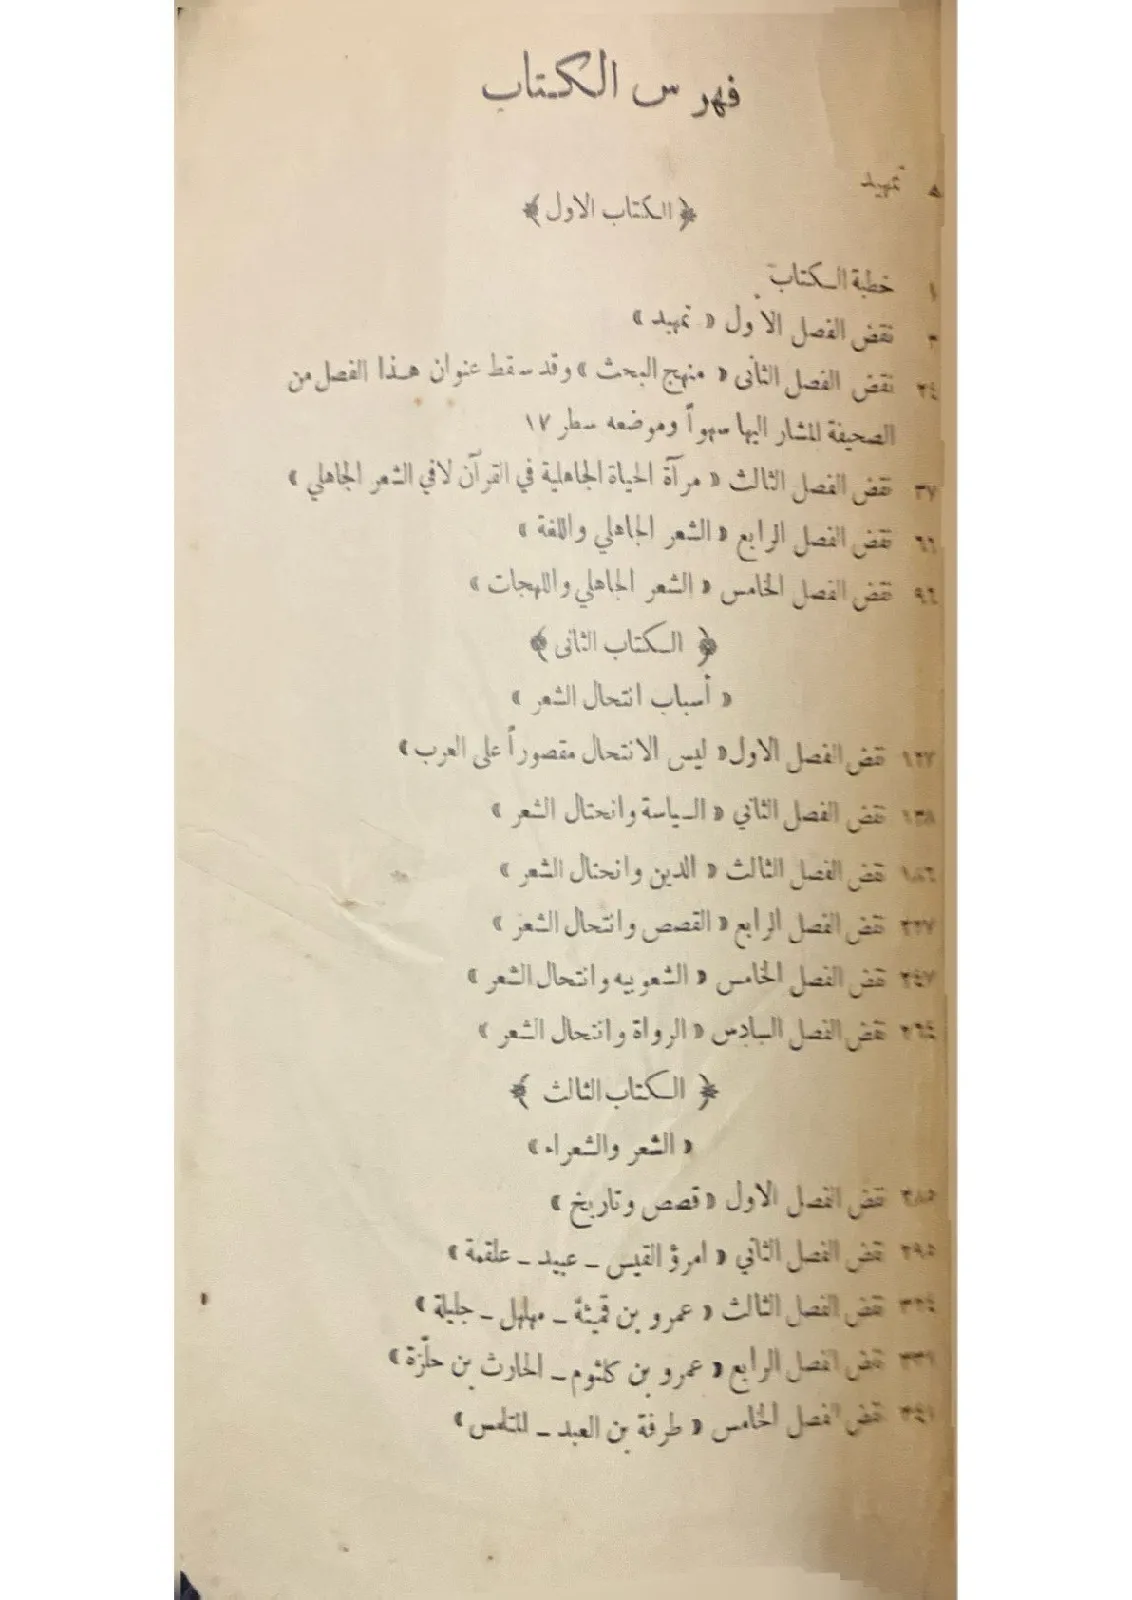 فهرس الكتاب
٥ تمهيد
﴿ الكتاب الاول ﴾
١ خطبة الكتاب
٣ نقض الفصل الأول « تمهيد »
٢٤ نقض الفصل الثانى « منهج البحث » وقد سقط عنوان هذا الفصل من
الصحيفة المشار اليها سهواً وموضعه سطر ١٧
٣٧ نقض الفصل الثالث « مرآة الحياة الجاهلية في القرآن لا في الشعر الجاهلي »
٦٦ نقض الفصل الرابع « الشعر الجاهلي واللغة »
٩٦ نقض الفصل الخامس « الشعر الجاهلي واللهجات »
﴿ الكتاب الثانى ﴾
« أسباب انتحال الشعر »
١٢٧ نقض الفصل الاول « ليس الانتحال مقصوراً على العرب »
١٣٨ نقض الفصل الثاني « السياسة وانحتال الشعر »
١٨٦ نقض الفصل الثالث « الدين وانحتال الشعر »
٢٢٧ نقض الفصل الرابع « القصص وانتحال الشعر »
٢٤٧ نقض الفصل الخامس « الشعوبيه وانتحال الشعر »
٢٦٤ نقض الفصل السادس « الرواة وانتحال الشعر »
﴿ الكتاب الثالث ﴾
« الشعر والشعراء »
٢٨٥ نقض الفصل الاول « قصص وتاريخ »
٢٩٥ نقض الفصل الثاني « امرؤ القيس ـ عبيد ـ علقمة »
٣٢٤ نقض الفصل الثالث « عمرو بن قميئة ـ مهلهل ـ جليلة »
نقض الفصل الرابع « عمرو بن كلثوم ـ الحارث بن حلّزة »
٣٤١ نقض الفصل الخامس « طرفة بن العبد ـ المتلمس »